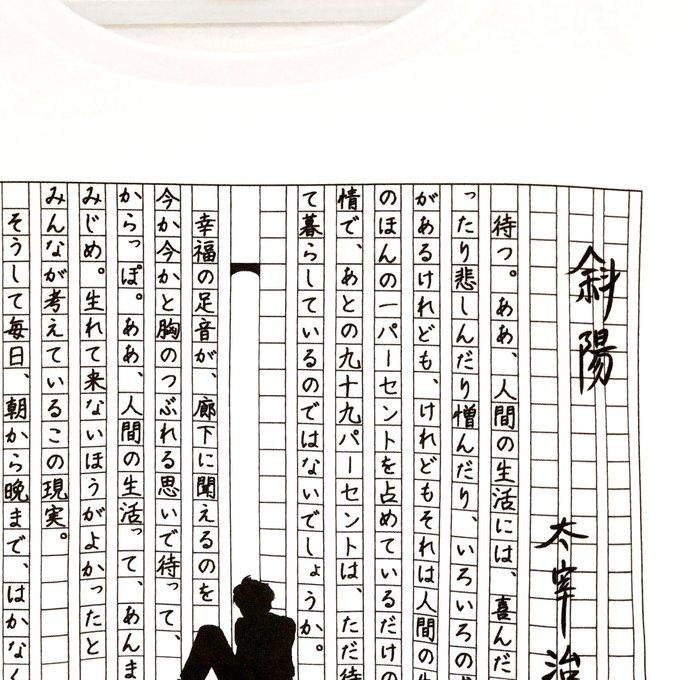 斜陽
太宰治
待つ。ああ、人間の生活には、喜んだ
ったり悲しんだり憎んだり、いろいろの
があるけれども、けれどもそれは人間の生
のほんの一パーセントを占めているだけの
情で、あとの九十九パーセントは、ただ待
て暮らしているのではないでしょうか。
幸福の足音が、廊下に聞えるのを
今か今かと胸のつぶれる思いで待って、
からっぽ。ああ、人間の生活って、あんま
みじめ。生れて来ないほうがよかったと
みんなが考えているこの現実。
そうして毎日、朝から晩まで、はかなく